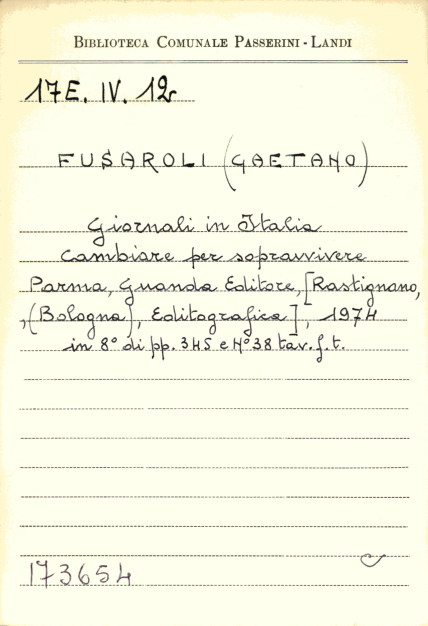 BIBLIOTECA COMUNALE PASSERINI-LANDI
17E. IV. 12
FUSAROLI (GAETANO)
Giornali in Italia
Cambiare per sopravvivere
Parma, Guanda Editore, [Rastignano,
,(Bologna), Editografica], 1974
in 8° di pp. 345 e N° 38 tav. f. t.
173654